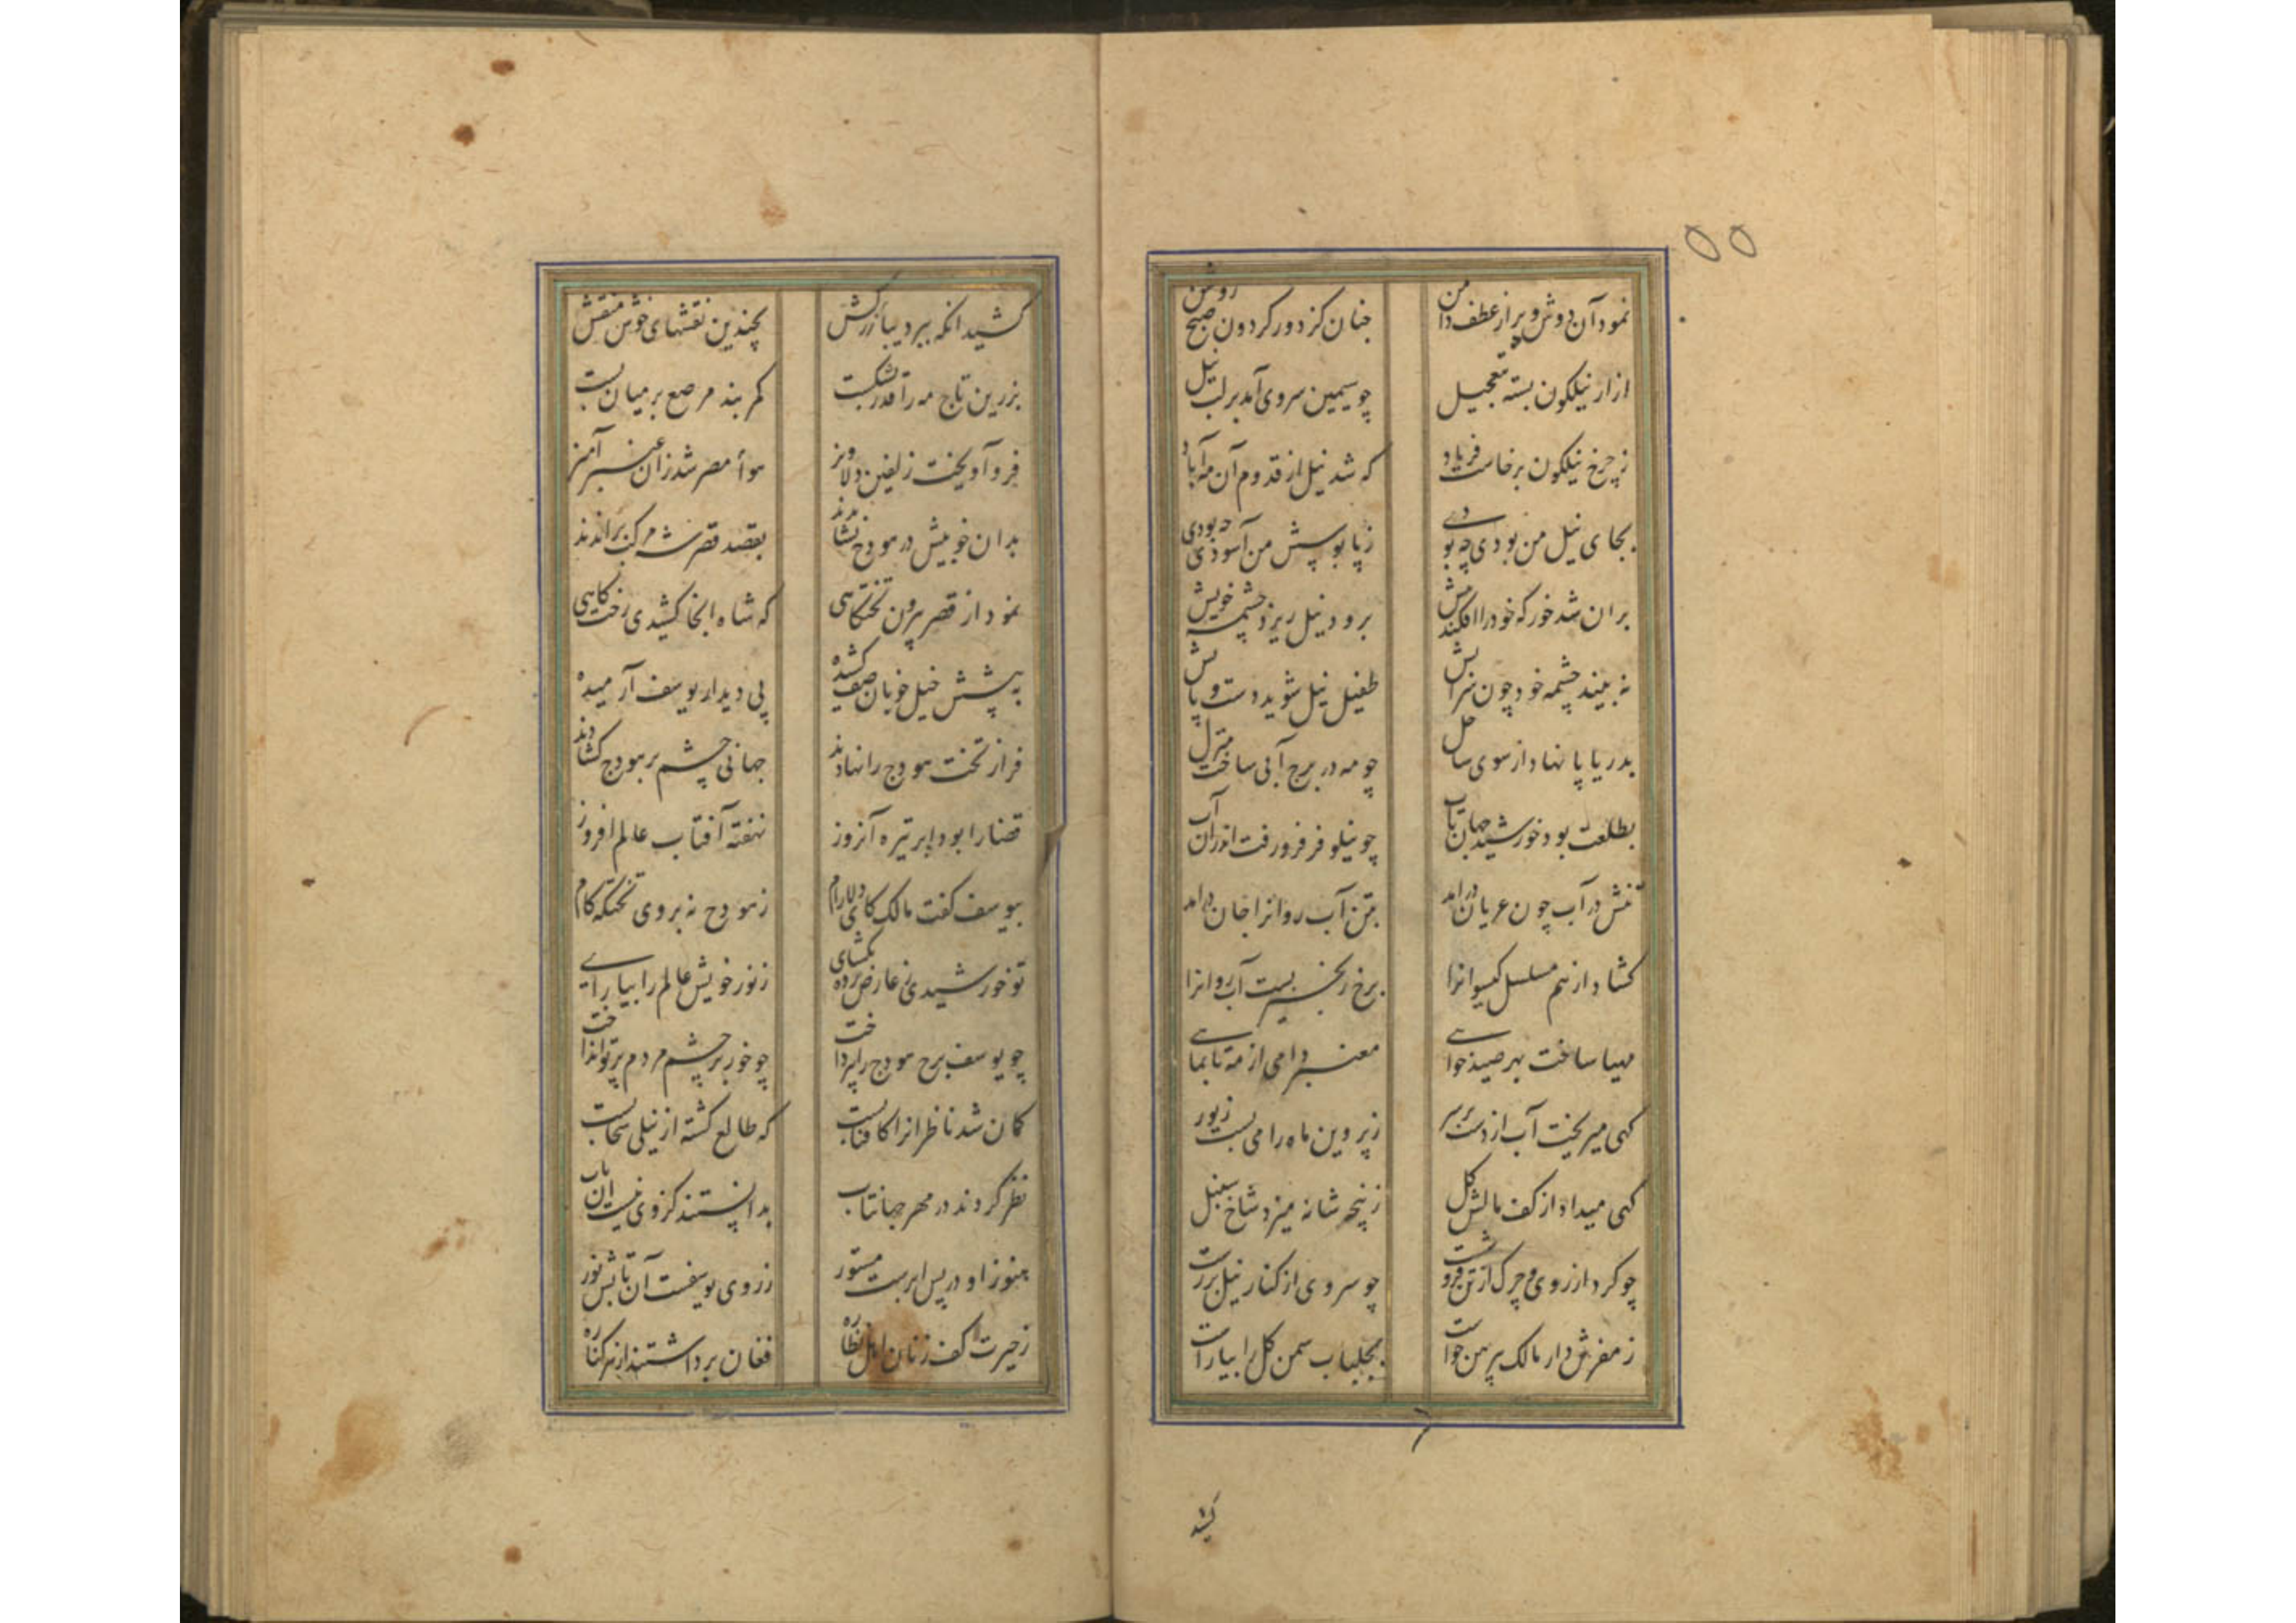 ۵۵
نمود آن دوش و بر از عطف دامن
چنان کز دور گردون صبح روشن
ازار نیلگون بسته بتعجیل
چو سیمین سروی آمد بر لب نیل
ز چرخ نیلگون برخاست فریاد
که شد نیل از قدوم آن مه آباد
بجای نیل من بودی چه بودی
ز پابوسش من آسودی چه بودی
بران شد خور که خود را افکند پیش
برود نیل ریزد چشمه خویش
نه بیند چشمه خود چون سزایش
طفیل نیل شوید دست و پایش
بدریا پا نهاد از سوی ساحل
چو مه در برج آبی ساخت منزل
بطلعت بود خورشید جهان تاب
چو نیلوفر فرو رفت اندران آب
تنش در آب چون عریان درآمد
بتن آب روانرا جان درآمد
کشاد از هم مسلسل گیسوانرا
برخ زنجیر بست آب روانرا
مهیا ساخت بهر صید خواهی
معنبر دامی از مه تا بماهی
گهی میریخت آب از دست بر سر
ز پروین ماه را می بست زیور
گهی میداد از کف مالش گل
ز پنجه شانه میزد شاخ سنبل
چو گرد از روی و چرک از تن فرو شست
چو سروی از کنار نیل بر رست
ز مفرش دار مالک پیرهن خواست
بجلباب سمن گل را بیاراست
کشید
کشید انگه ببر دیبا زرکش
بچندین نقشهای خوش منقش
بزرین تاج مه را قدر بشکست
کمربند مرصع بر میان بست
فرو آویخت زلفین دلاویز
هوأ مصر شد زان عنبر آمیز
بدان خوبیش در هودج نشاندند
بقصد قصر شه مرکب براندند
نمود از قصر بیرون تختگاهی
که شاه انجا کشیدی رخت گاهی
به پیشش خیل خوبان صف کشیده
پی دیدار یوسف آرمیده
فراز تخت هودج را نهادند
جهانی چشم بر هودج کشادند
قضا را بود ابر تیره آنروز
نهفته آفتاب عالم افروز
بیوسف گفت مالک کای دلارام
ز هودج نه بروی تختگه گام
تو خورشیدی ز عارض پرده بگشای
ز نور خویش عالم را بیارای
چو یوسف برج هودج را بپرداخت
چو خور بر چشم مردم پرتو انداخت
گمان شد ناظرانرا کافتابست
که طالع گشته از نیلی سحابست
نظر کردند در مهر جهانتاب
بدانستند کز وی نیست ان تاب
هنوز او در پس ابرست مستور
ز روی یوسفست آن تابش نور
ز حیرت کف زنان اهل نظاره
فغان برداشتند از هر کناره